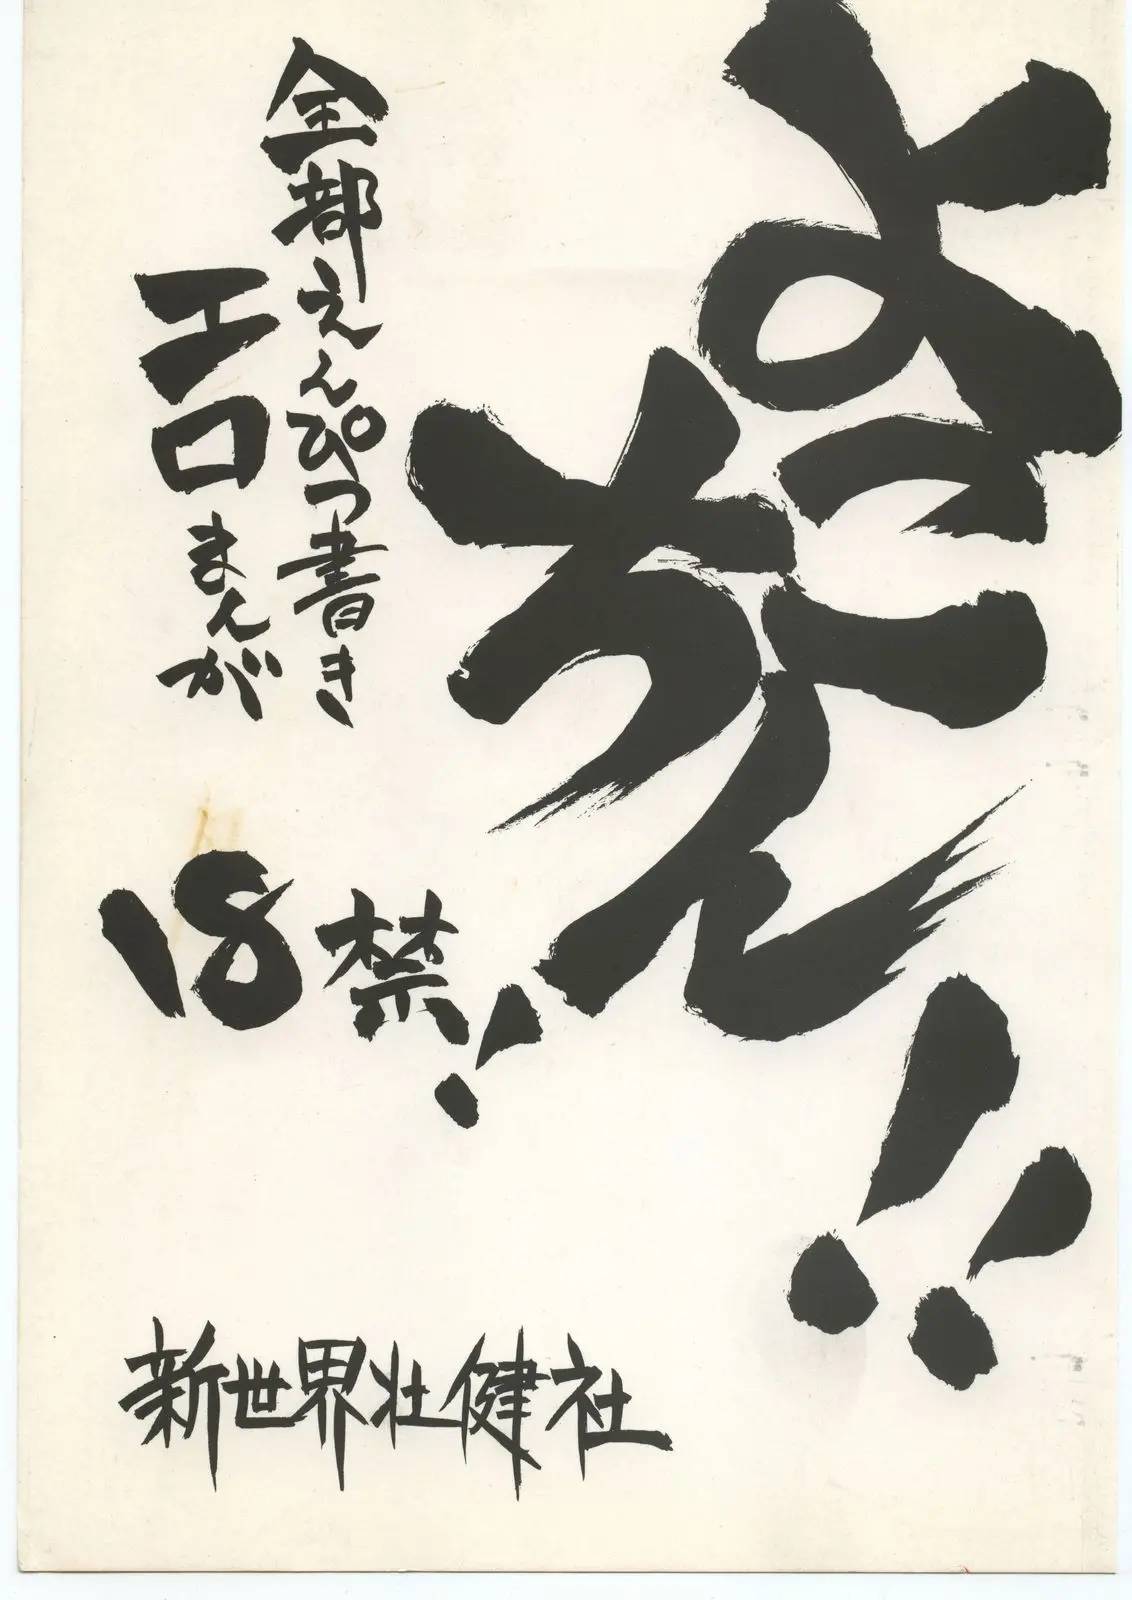 よこちん!!
全部えんぴつ書き
エロまんが
18禁!
新世界壮健社